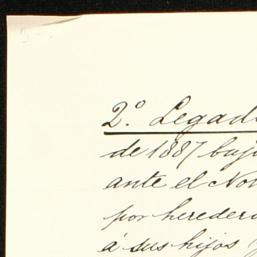 2.º Legad
de 1887 bajo
ante el Not
por heredero
á sus hijos